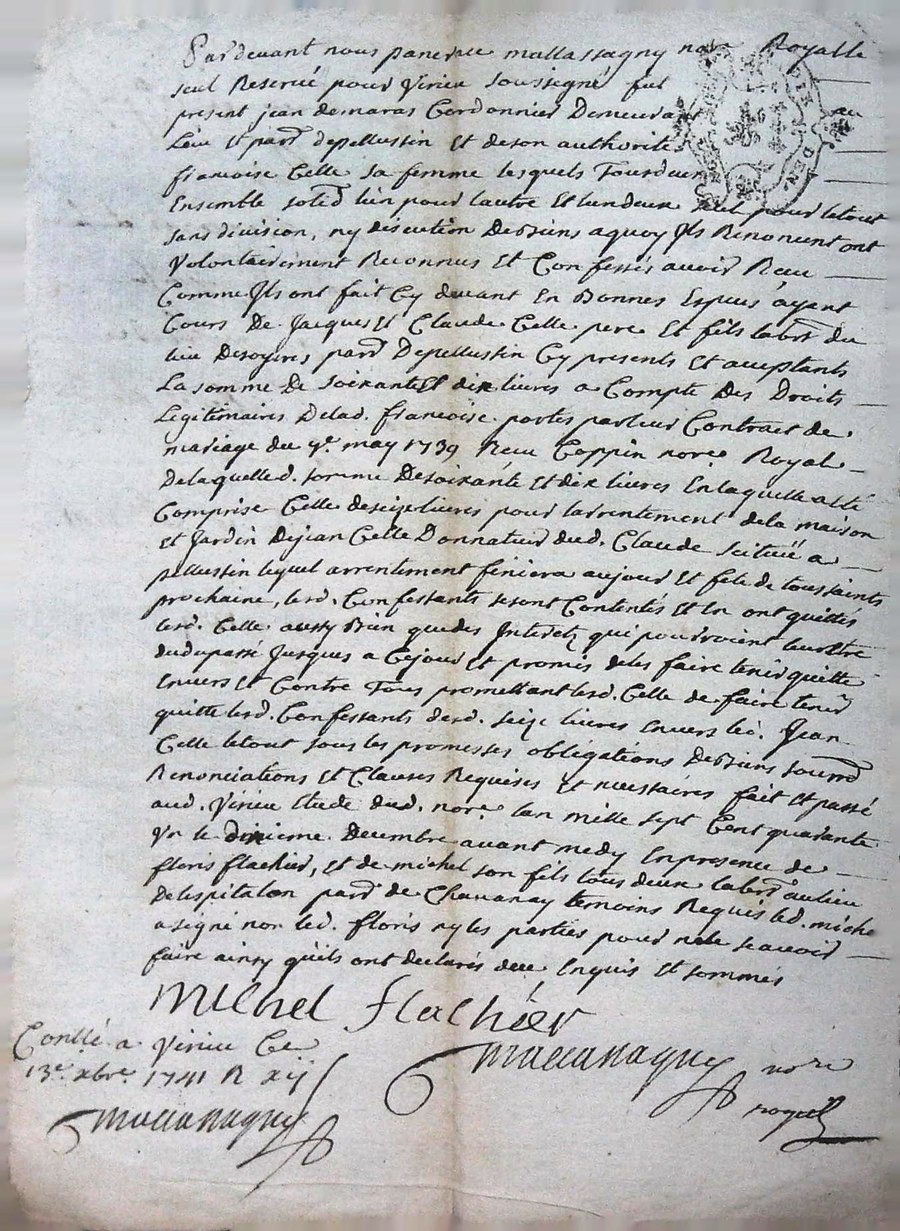 Pardevant nous panerace mallassagny nore Royalle
seul Reservé pour Virieu soussigné fut
present jean demaras Cordonnier Demeurant au
Lieu et parr. depellussin Et deson authorité
francoise Celle sa femme lesquels Tourdeux
Ensemble solid. lun pour lautre Et lundeux seul pour letout
sans division, ny discution Debiens aquoy Ils Renoncent ont
Volontairement Reconnus Et Confessés avoir Receu
Comme Ils ont fait Cy devant En Bonnes Especes ayant
Cours De Jacques Et Claude Celle pere Et fils labrs du
lieu Desoyeres parr. Depellussin Cy presents Et aceptants
La somme De soixante Et dix livres a Compte Des Droits
Legitimaires Delad. francoise portes parleur Contract de
mariage du may 1739 Receu Coppin nore Royal
delaquelled. somme Desoixante Et dix livres Enlaquelle a Eté
Comprise Celle deseize livres pour larrentement dela maison
Et Jardin Dejean Celle Donnateur dud. Claude scitué a
pellussin lequel arrentement finiera aujour Et fete de toussaints
prochaine, lesd. Confessants se sont Contentés Et En ont quittés
lesd. Celle aussy Bien que des Interets qui pourroient leur Etre
du dupassé Jusques a Cejour Et promis deles faire tenir quitte
Envers Et Contre Tous promettant lesd. Celle de faire tenir
quitte lesd. Confessants desd. seize livres Envers led. Jean
Celle letout sous les promesses obligations Debiens soumis.
Renonciations Et Clauses Requises Et necessaires fait Et passé
aud. Virieu Etude dud. nore lan mille sept Cent quarante
Vn le dixieme Decembre avant medy Enpresence de
floris flachier, Et de michel son fils tous deux labrs aulieu
Delespitalon parr. de Chavanay temoins Requis led. michel
a signé non led. floris ny les parties pour ne le scavoir
faire ainsy quils ont declarés de ce Enquis Et sommés
michel flachier
mallassagny nore
royal
Conllé a Virieu Ce
13e. xbre. 1741 R xij s
mallassagny